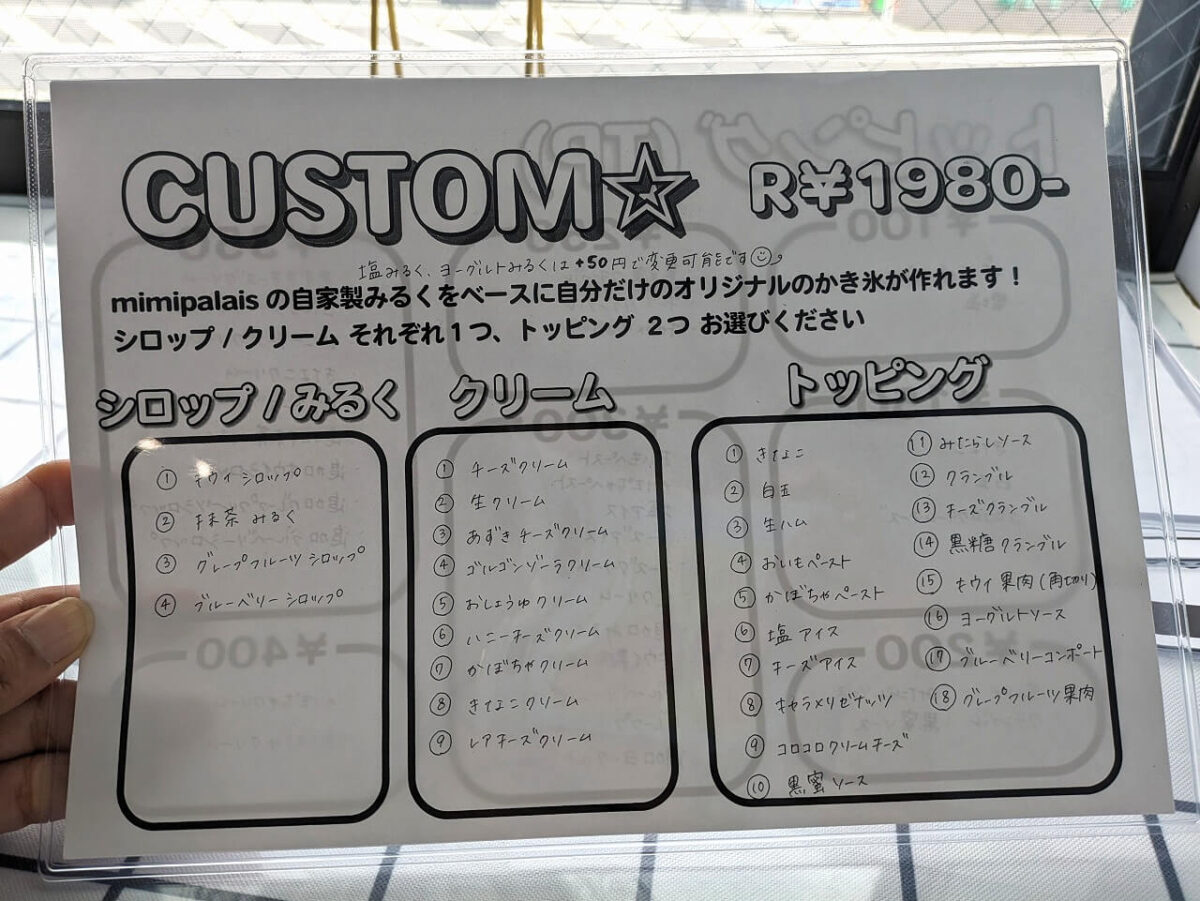 CUSTOM☆ R¥1980-
塩みるく、ヨーグルトみるくは+50円で変更可能です
mimipalais の自家製みるくをベースに自分だけのオリジナルのかき氷が作れます！
シロップ / クリーム それぞれ1つ、トッピング 2つ お選びください
シロップ / みるく
① キウイシロップ
② 抹茶みるく
③ グレープフルーツシロップ
④ ブルーベリーシロップ
クリーム
① チーズクリーム
② 生クリーム
③ あずきチーズクリーム
④ ゴルゴンゾーラクリーム
⑤ おしょうゆクリーム
⑥ ハニーチーズクリーム
⑦ かぼちゃクリーム
⑧ きなこクリーム
⑨ レアチーズクリーム
トッピング
① きなこ
② 白玉
③ 生ハム
④ おいもペースト
⑤ かぼちゃペースト
⑥ 塩アイス
⑦ チーズアイス
⑧ キャラメリゼナッツ
⑨ コロコロクリームチーズ
⑩ 黒蜜ソース
⑪ みたらしソース
⑫ クランブル
⑬ チーズクランブル
⑭ 黒糖クランブル
⑮ キウイ果肉(角切り)
⑯ ヨーグルトソース
⑰ ブルーベリーコンポート
⑱ グレープフルーツ果肉